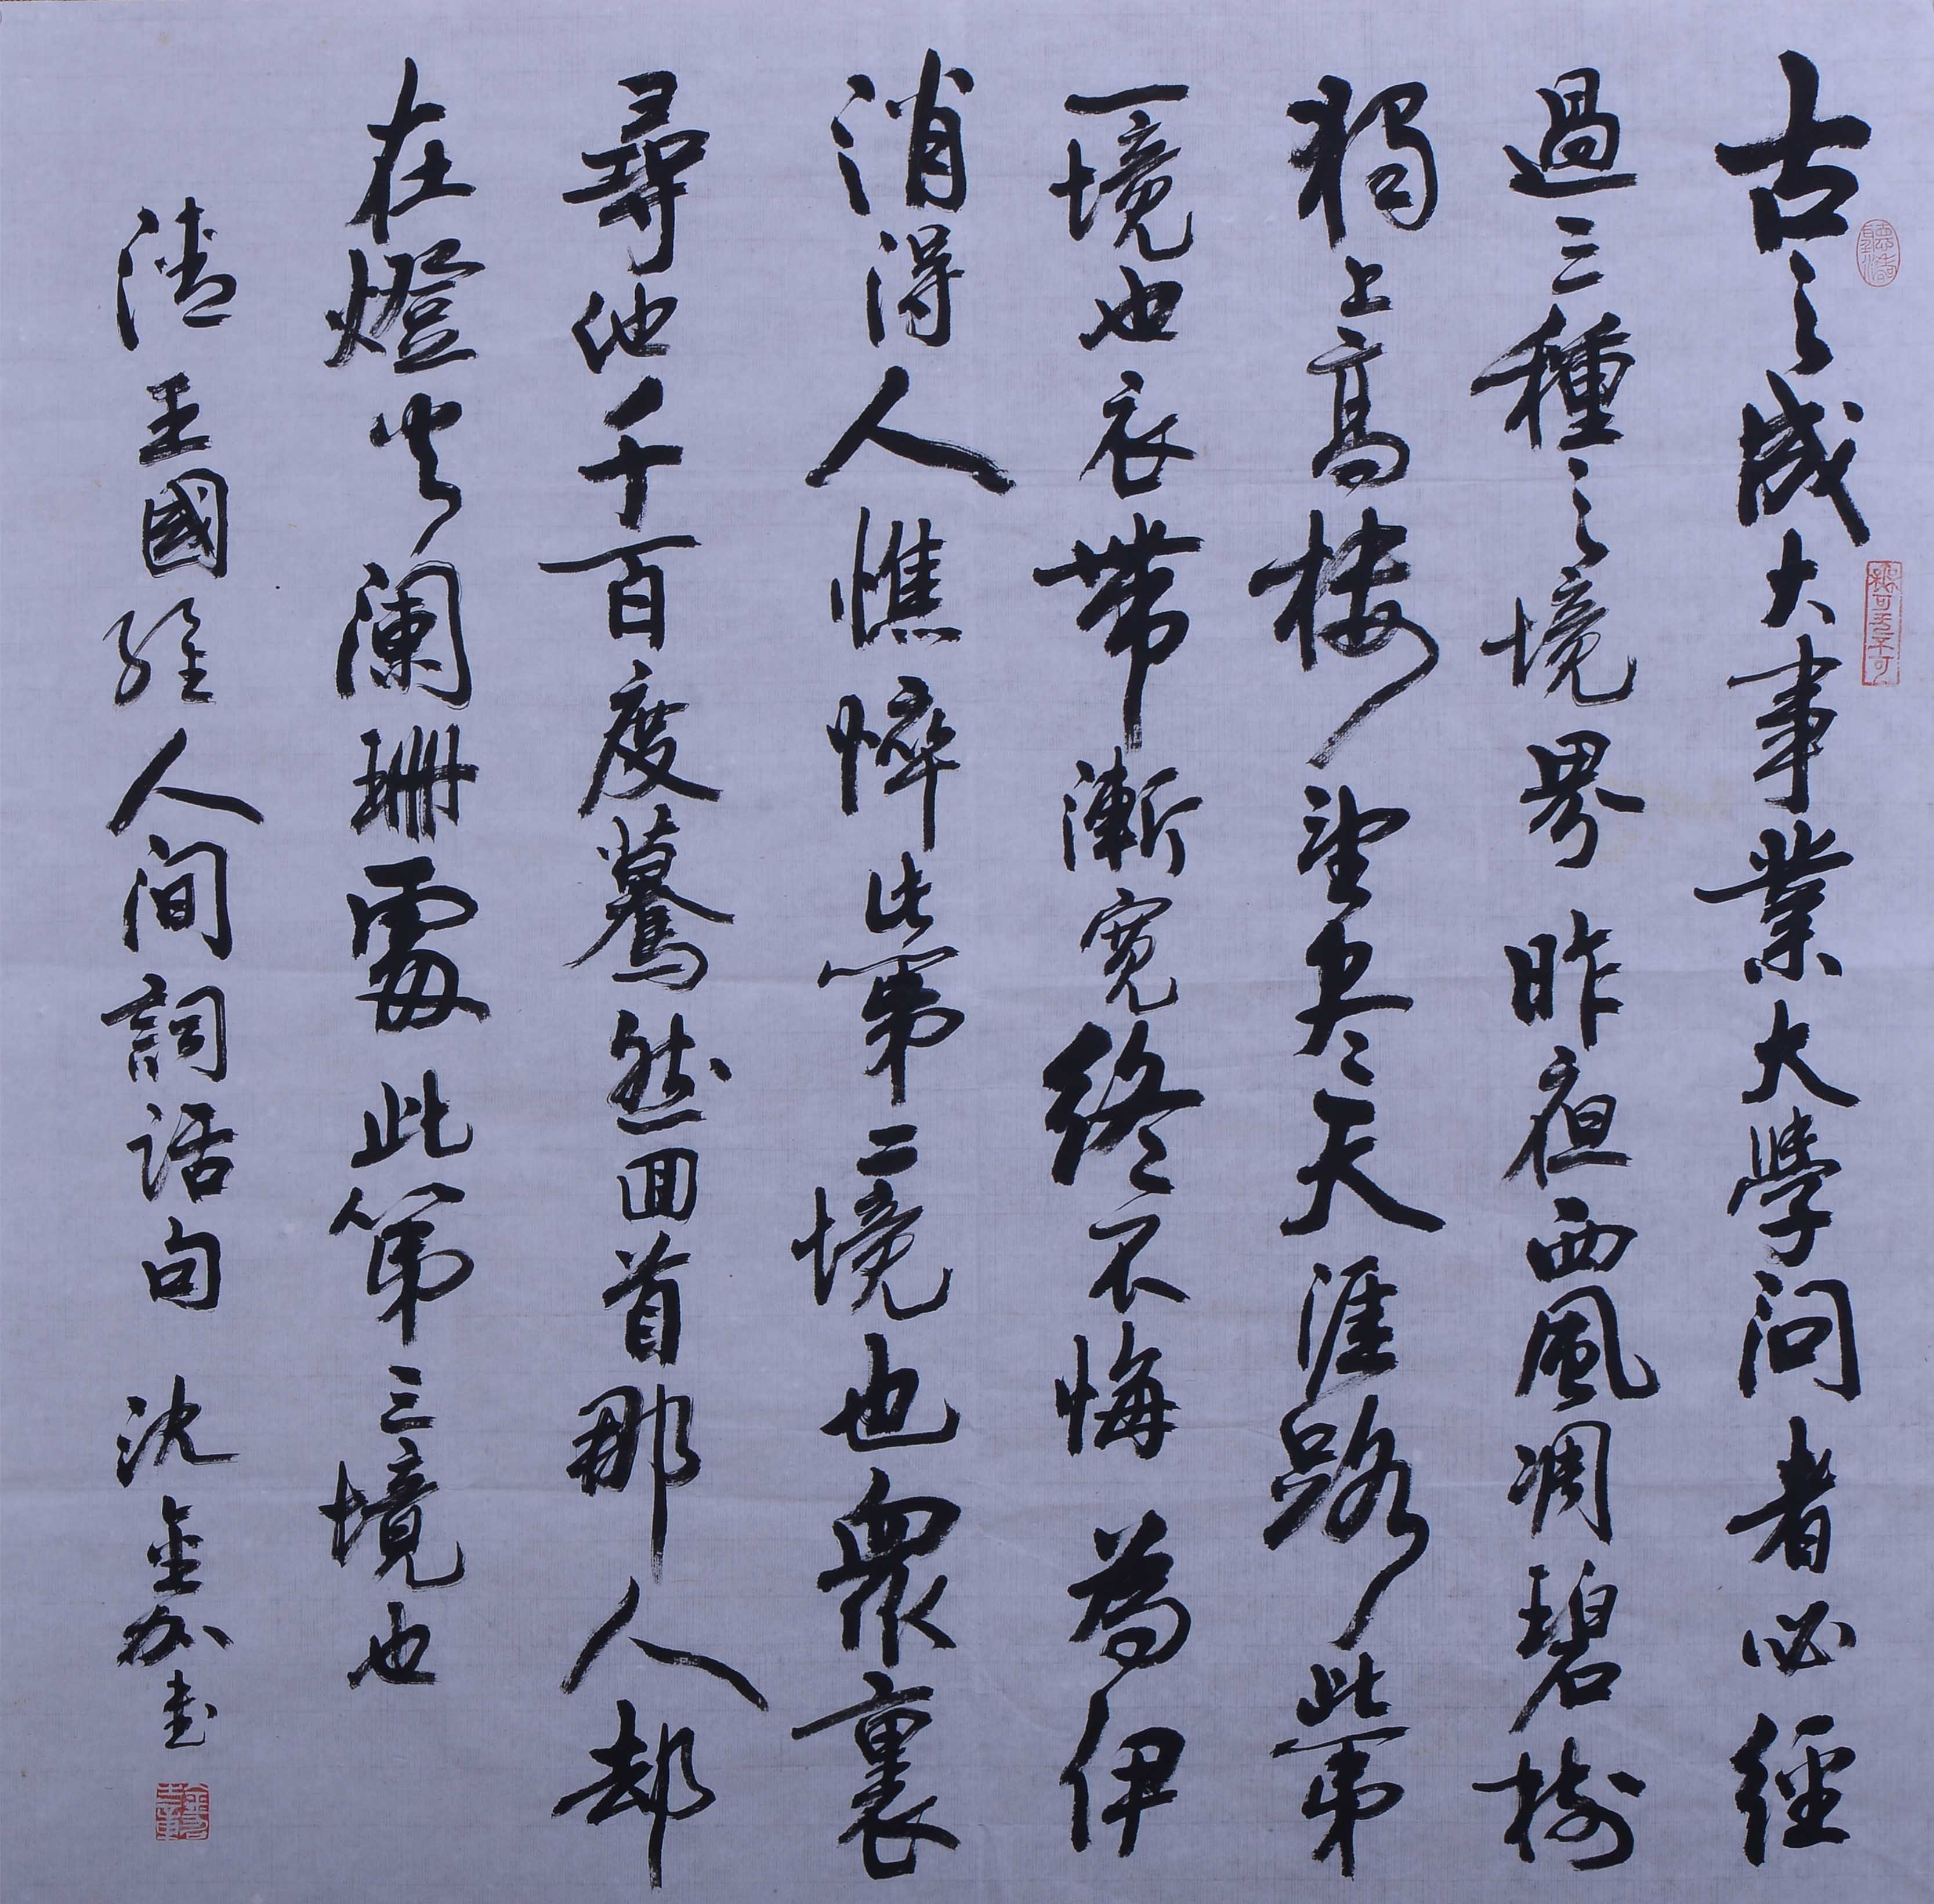 古之成大事業大學问者必經
過三種之境界昨夜西風凋碧樹
獨上高樓望尽天涯路此第
一境也衣帶漸寬終不悔為伊
消得人憔悴此第二境也衆裏
尋他千百度驀然回首那人却
在燈火阑珊處此第三境也
清王國維人间詞话句 沈金書
聽濤